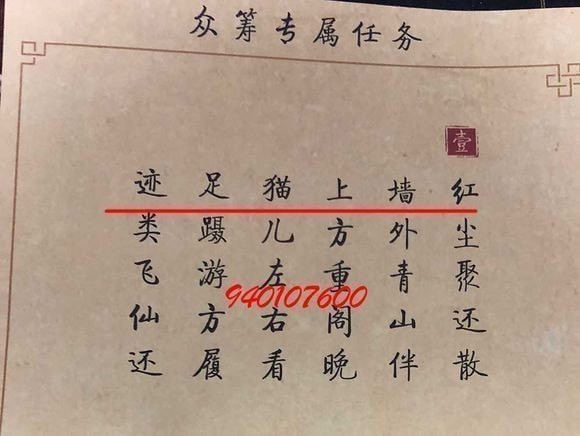 众筹专属任务
壹
红尘聚还散
墙外青山伴
上方重阁晚
猫儿左右看
足蹑游方履
迹类飞仙还
940107600